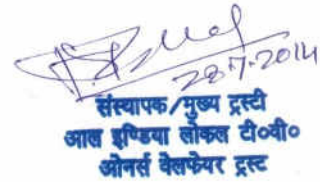 28.7.2014
संस्थापक/मुख्य ट्रस्टी
आल इण्डिया लोकल टी०वी०
ओनर्स वेलफेयर ट्रस्ट